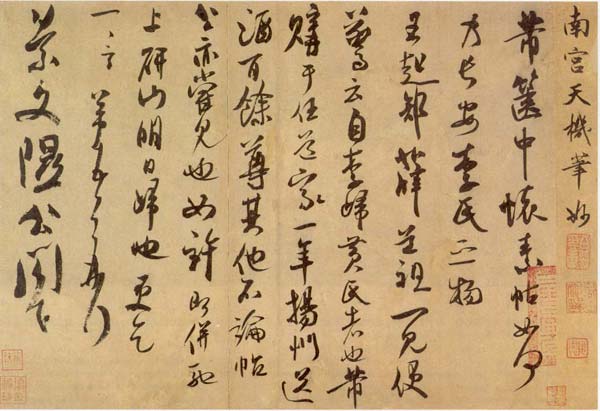 南宮天機筆妙
芾篋中懷素帖如何
乃長安李氏之物
王起部薛道祖一見便
驚云自李歸黃氏者也芾
購于任道家一年揚州送
酒百餘尊其他不論帖
公亦嘗見也如許即併馳
上研山明日歸也更乞
一言 芾頓首再拜
景文隰公閤下